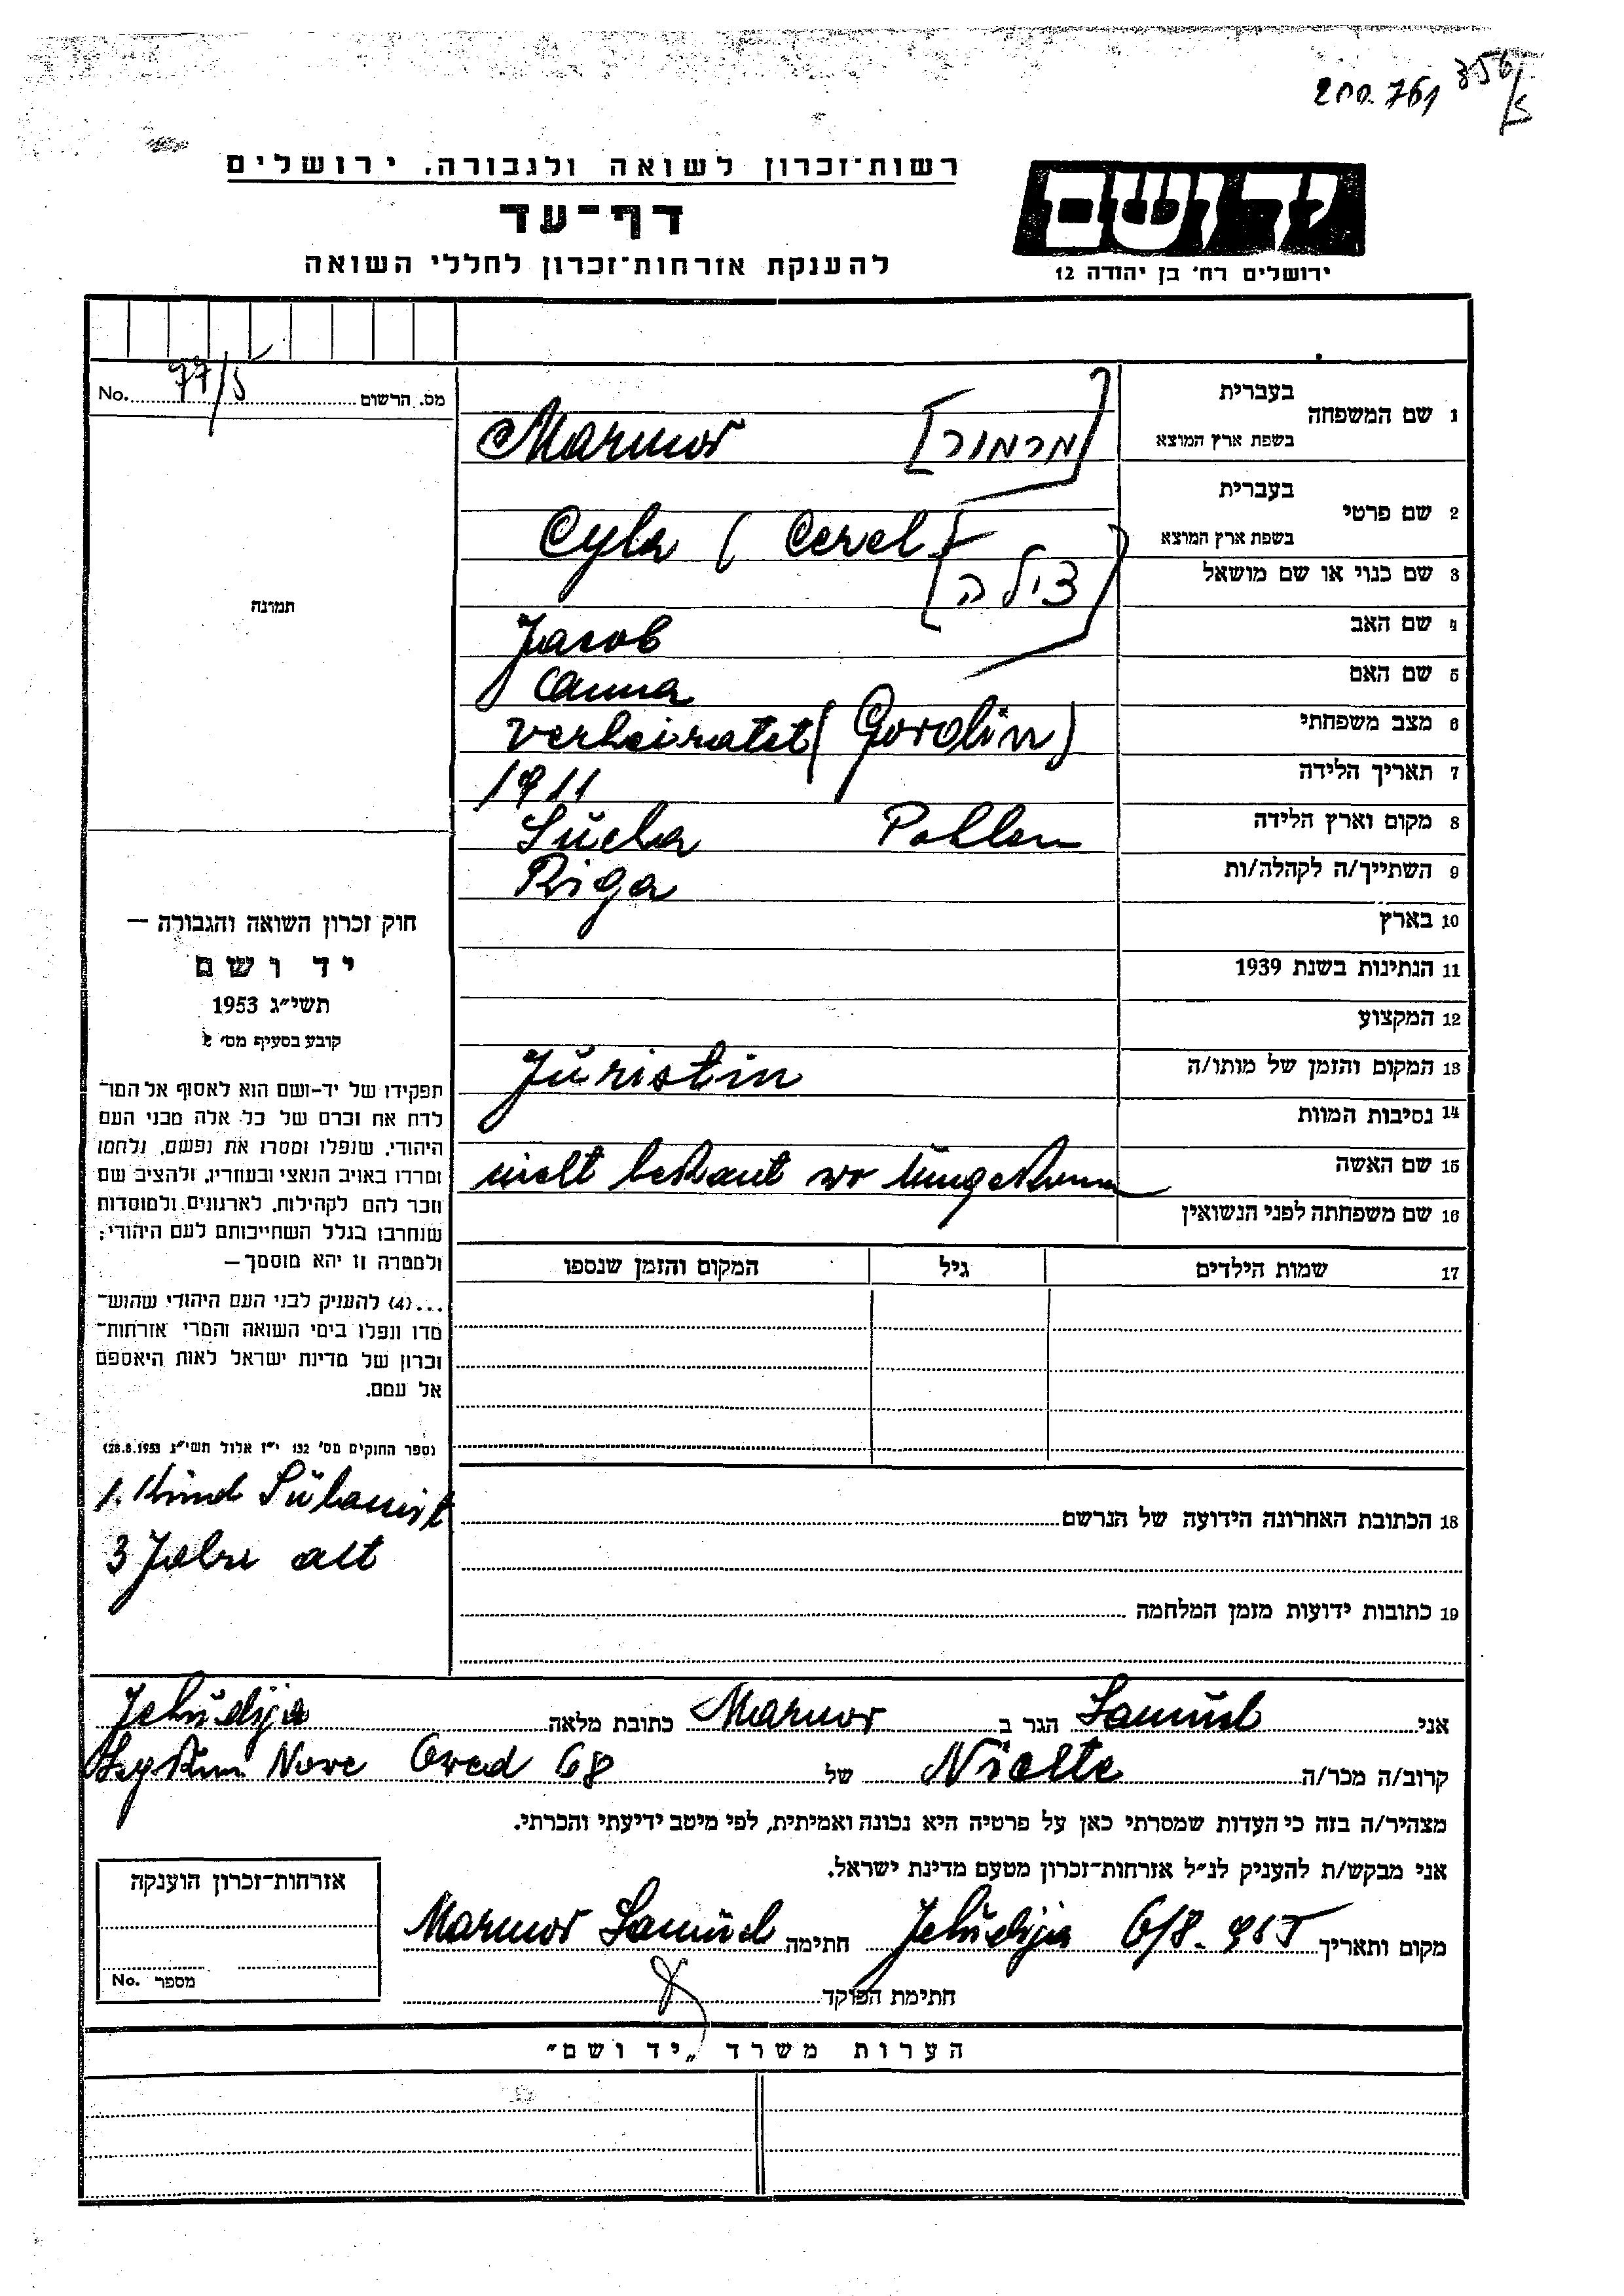 200.761 356/5
רשות־זכרון לשואה ולגבורה. ירושלים
דף־עד
להענקת אזרחות־זכרון לחללי השואה
יד ושם
ירושלים רח' בן יהודה 12
מס. הרשום No. 77/5
1 שם המשפחה בעברית
בשפת ארץ המוצא
Marmor [מרמור]
2 שם פרטי בעברית
בשפת ארץ המוצא
Cyla (Cerel)
3 שם כנוי או שם מושאל
[צילה]
4 שם האב
Jacob
5 שם האם
6 מצב משפחתי
verheiratet (Gordin)
7 תאריך הלידה
1911
8 מקום וארץ הלידה
Sucha Pohlen
9 השתייך/ה לקהלה/ות
Riga
10 בארץ
11 הנתינות בשנת 1939
12 המקצוע
13 המקום והזמן של מותו/ה
Jüristin
14 נסיבות המוות
15 שם האשה
nicht bekant wo
16 שם משפחתה לפני הנשואין
17 שמות הילדים
גיל
המקום והזמן שנספו
תמונה
חוק זכרון השואה והגבורה —
יד ושם
תשי״ג 1953
קובע בסעיף מס' 2
תפקידו של יד־ושם הוא לאסוף אל המו־
לדת את זכרם של כל אלה מבני העם
היהודי, שנפלו ומסרו את נפשם, נלחמו
ומרדו באויב הנאצי ובעוזריו, ולהציב שם
וזכר להם לקהילות, לארגונים ולמוסדות
שנחרבו בגלל השתייכותם לעם היהודי;
ולמטרה זו יהא מוסמך —
...(4) להעניק לבני העם היהודי שהוש־
מדו ונפלו בימי השואה והמרי אזרחות־
זכרון של מדינת ישראל לאות היאספם
אל עמם.
(ספר החוקים מס' 132 י״ז אלול תשי״ג 28.8.1953)
1. Kind Sülamit
3 Jahre alt
18 הכתובת האחרונה הידועה של הנרשם
19 כתובות ידועות מזמן המלחמה
אני Samuel הגר ב Marmor כתובת מלאה Jehüdija
קרוב/ה מכר/ה Nichte של Nove Owed 68
מצהיר/ה בזה כי העדות שמסרתי כאן על פרטיה היא נכונה ואמיתית, לפי מיטב ידיעתי והכרתי.
אני מבקש/ת להעניק לנ״ל אזרחות־זכרון מטעם מדינת ישראל.
מקום ותאריך Jehüdija 6/8. 955 חתימה Marmor Samuel
חתימת הפוקד
אזרחות־זכרון הוענקה
מספר No.
הערות משרד „יד ושם״